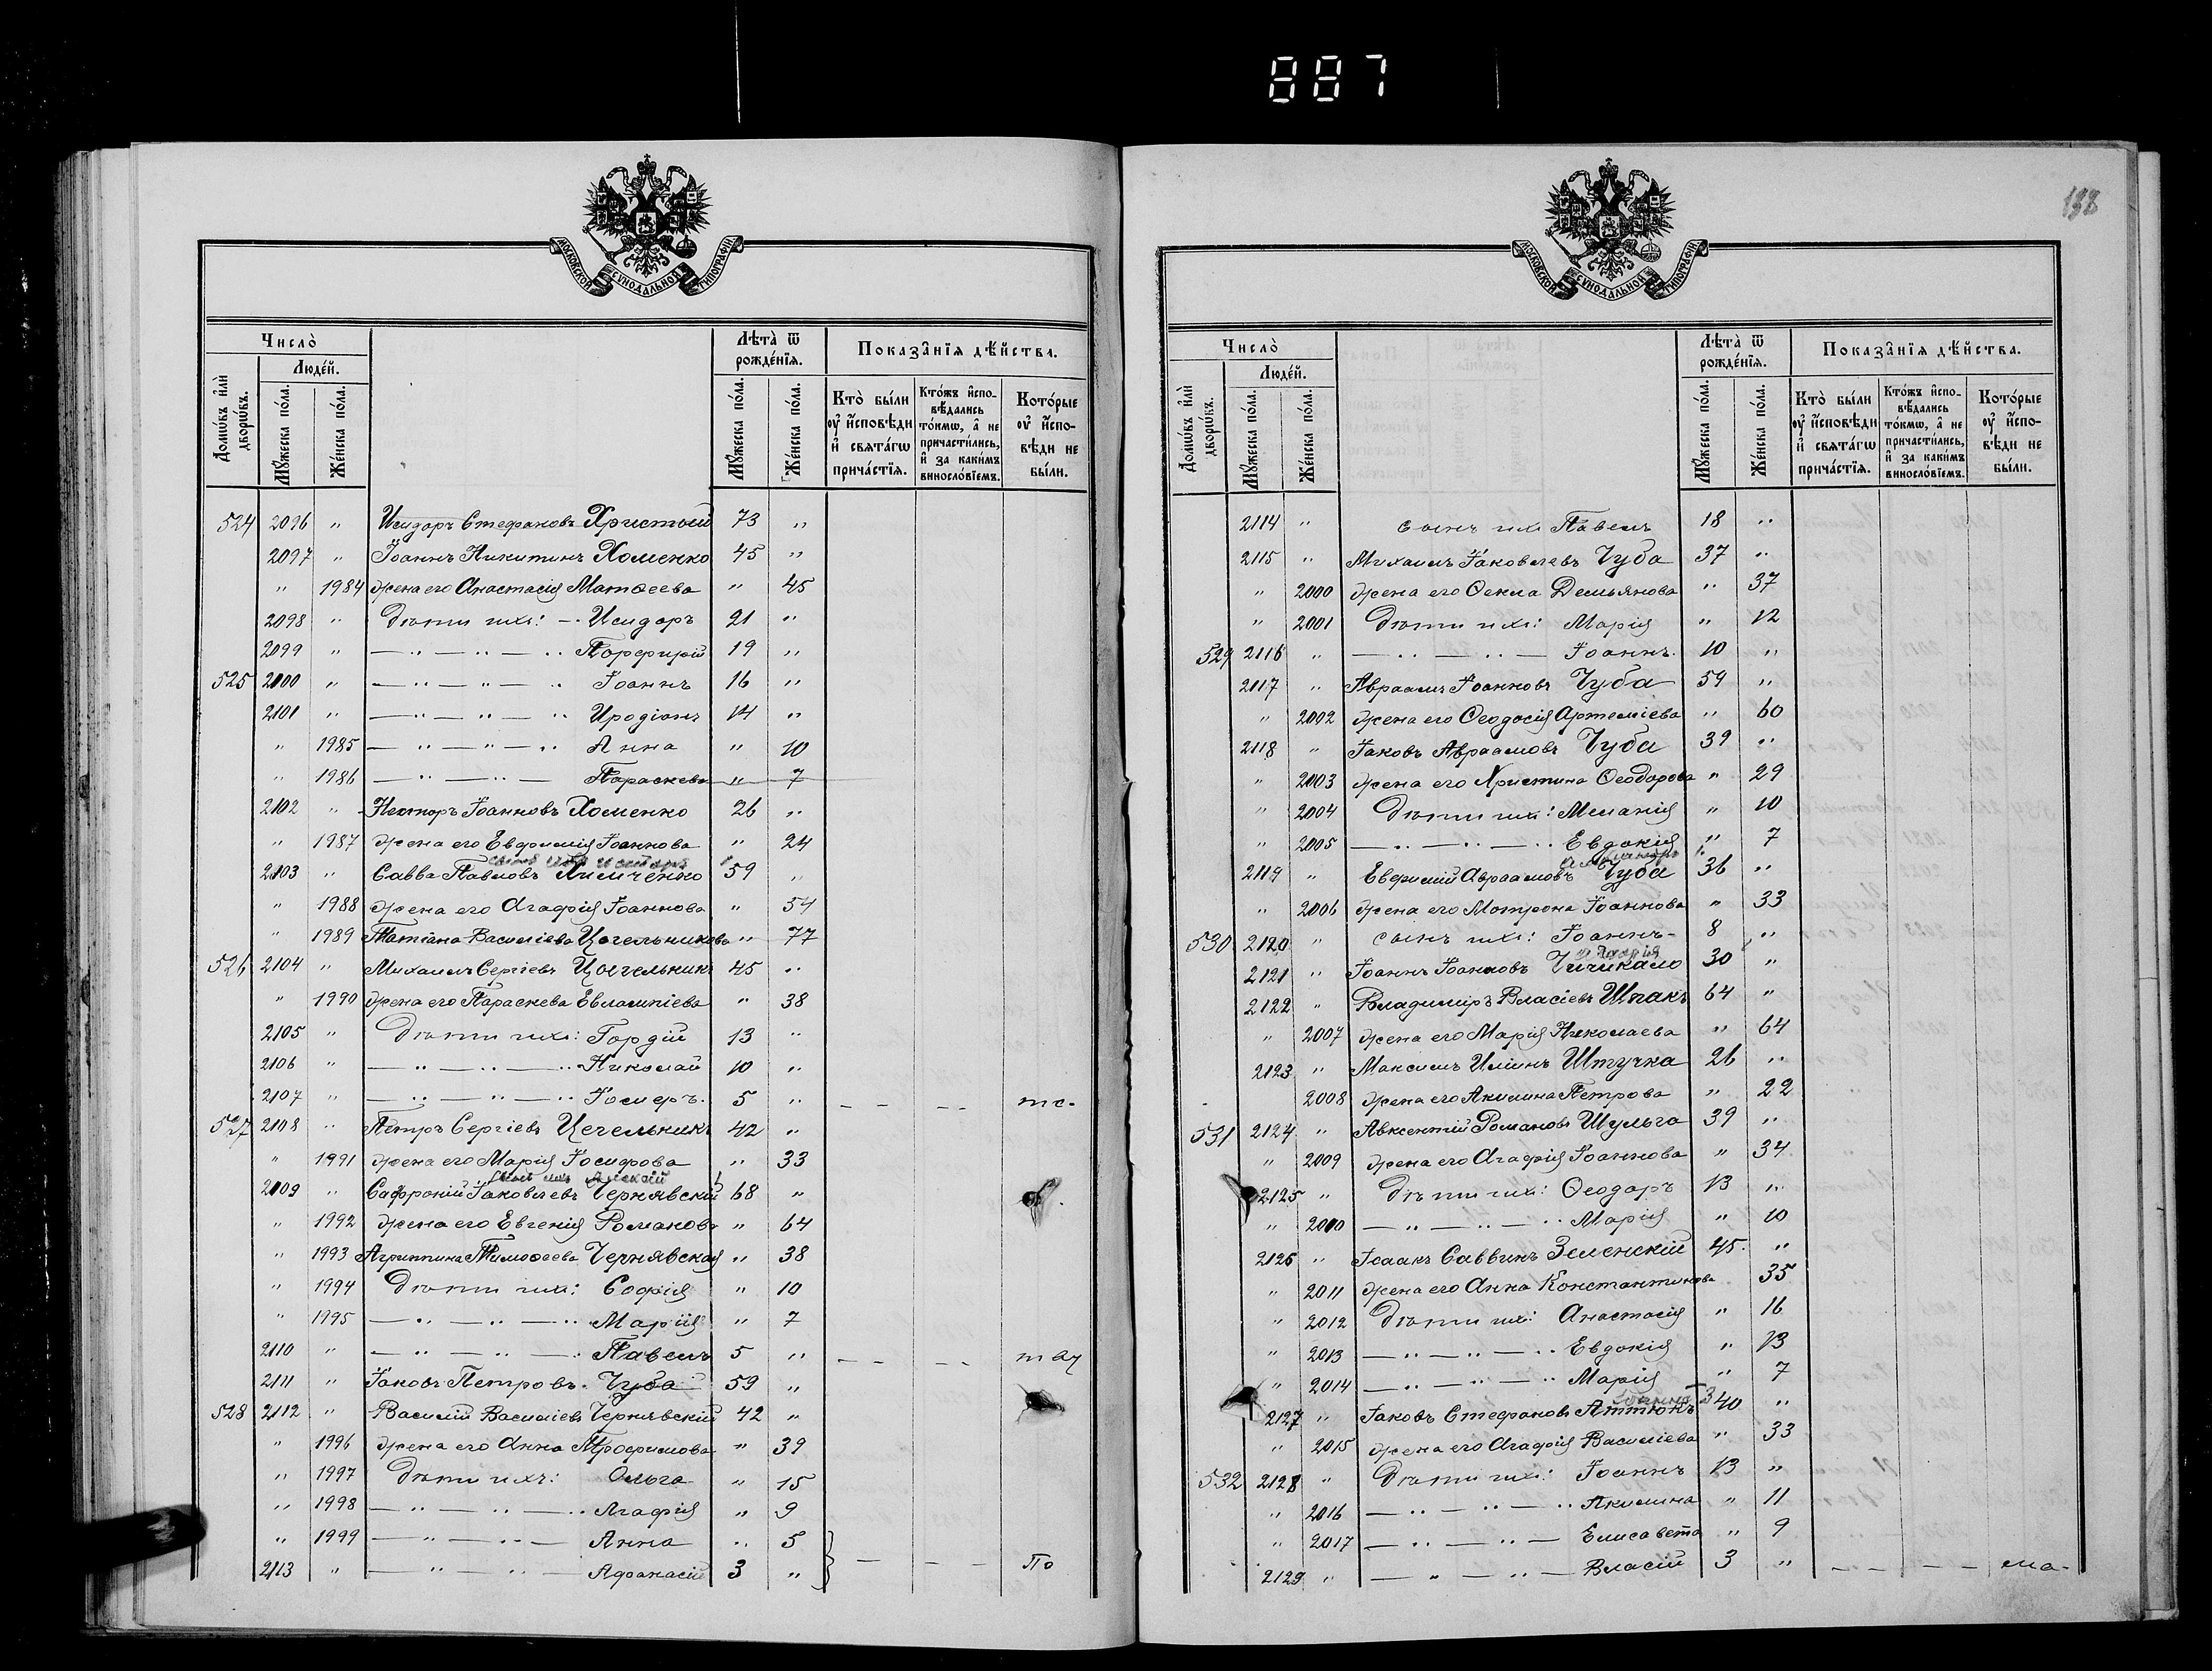 887
МОСКОВСКОЙ СѴНОДАЛЬНОЙ ТИПОГРАФІИ
Число̀
Людéй.
Домѡ́въ и҆лѝ дворѡ́въ.
Мꙋ́жеска по́ла.
Же́нска по́ла.
Лѣ́та ѿ рожде́нїѧ.
Мꙋ́жеска по́ла.
Же́нска по́ла.
Показа̑нїѧ дѣ́йства.
Кто̀ бы́ли ᲂу҆ и҆сповѣ́ди и҆ свѧта́гѡ прича́стїѧ.
Кто́жъ и҆сповѣ́дались то́кмѡ, а҆ не причасти́лись, и҆ за каки́мъ винослові́емъ.
Кото́рые ᲂу҆ и҆сповѣ́ди не бы́ли.
524 2096 " Исидоръ Стефановъ Христ 73 "
2097 " Іоаннъ Никитинъ Хоменко 45 "
" 1984 жена его Анастасія Матѳеева " 45
2098 " Дѣти ихъ: — Исидоръ 21 "
2099 " — " — " — " Порфирій 19 "
525 2100 " — " — " — " Іоаннъ 16 "
2101 " — " — " — " Иродіонъ 14 "
" 1985 — " — " — " Анна " 10
" 1986 — " — " — Параскева " 7
2102 " Несторъ Іоанновъ Хоменко 26 "
" 1987 жена его Евфимія Іоаннова " 24
2103 " Савва Павловъ 59 "
" 1988 жена его Агафія Іоаннова " 54
" 1989 Татіана Василіева Цегельникова " 77
526 2104 " Михаилъ Сергіевъ Цегельникъ 45 "
" 1990 жена его Параскева Евлампіева " 38
2105 " Дѣти ихъ: Гордій 13 "
2106 " — " — " — " Николай 10 "
2107 " — " — " — " Іосифъ. 5 " — — — — те-
527 2108 " Петръ Сергіевъ Цегельникъ 42 "
" 1991 жена его Марія Іосифова " 33
сынъ ихъ Алексій
2109 " Сафроній Іаковлевъ Чернявскій 68 "
" 1992 жена его Евгенія Романова " 64
" 1993 Агриппина Тимоѳеева Чернявская " 38
" 1994 Дѣти ихъ: Софія " 10
" 1995 — " — " — " Марія " 7
2110 " — " — " — " Павелъ 5 " — — — —
2111 " Іаковъ Петровъ Чуба 59 "
528 2112 " Василій Василіевъ Чернявскій 42 "
" 1996 жена его Анна Трофимова " 39
" 1997 Дѣти ихъ: Ольга " 15
" 1998 — " — " — " Агафія " 9
" 1999 — " — " — Анна " 5
2113 " — " — " — Афанасій 3 " — — — По
138
МОСКОВСКОЙ СѴНОДАЛЬНОЙ ТИПОГРАФІИ
Число̀
Людéй.
Домѡ́въ и҆лѝ дворѡ́въ.
Мꙋ́жеска по́ла.
Же́нска по́ла.
Лѣ́та ѿ рожде́нїѧ.
Мꙋ́жеска по́ла.
Же́нска по́ла.
Показа̑нїѧ дѣ́йства.
Кто̀ бы́ли ᲂу҆ и҆сповѣ́ди и҆ свѧта́гѡ прича́стїѧ.
Кто́жъ и҆сповѣ́дались то́кмѡ, а҆ не причасти́лись, и҆ за каки́мъ винослові́емъ.
Кото́рые ᲂу҆ и҆сповѣ́ди не бы́ли.
2114 " сынъ ихъ Павелъ 18 "
2115 " Михаилъ Іаковлевъ Чуба 37 "
" 2000 жена его Ѳекла Демьянова " 37
" 2001 Дѣти ихъ: Марія " 12
529 2116 " — " — " — Іоаннъ. 10 "
2117 " Авраамъ Іоанновъ Чуба 59 "
" 2002 жена его Ѳеодосія Артеміева " 60
2118 " Іаковъ Авраамовъ Чуба 39 "
" 2003 жена его Христина Ѳеодорова " 29
" 2004 Дѣти ихъ: Меланія " 10
" 2005 — " — " — " Евдокія " 7
2119 " Евфимій Авраамовъ Чуба 36 "
" 2006 жена его Матрона Іоаннова " 33
530 2120 " сынъ ихъ: Іоаннъ- 8 "
2121 " Іоаннъ Іоанновъ Чичикало 30 "
2122 " Владимиръ Власіевъ Шпакъ 64 "
" 2007 жена его Марія Николаева " 64
2123 " Максимъ Илiинъ Штучка 26 "
2008 жена его Акилина Петрова " 22
531 2124 " Авксентій Романовъ Шульга 39 "
" 2009 жена его Агафія Іоаннова " 34
2125 " Дѣти ихъ: Ѳеодоръ 13 "
" 2010 — " — " — " Марія " 10
2126 " Исаакъ Саввинъ Зеленскій 45. "
" 2011 жена его Анна Константинова 35
" 2012 Дѣти ихъ: Анастасія " 16
" 2013 — " — " — " Евдокія " 13
" 2014 — " — " — " Марія " 7
2127 " Іаковъ Стефановъ 40 "
" 2015 жена его Агафія Василіева " 33
532 2128 " Дѣти ихъ: Іоаннъ 13 "
" 2016 — " — " — " Акилина " 11
" 2017 — " — " — Елисавета " 9
2129 " — " — " — Власій 3 " — — — — ма-